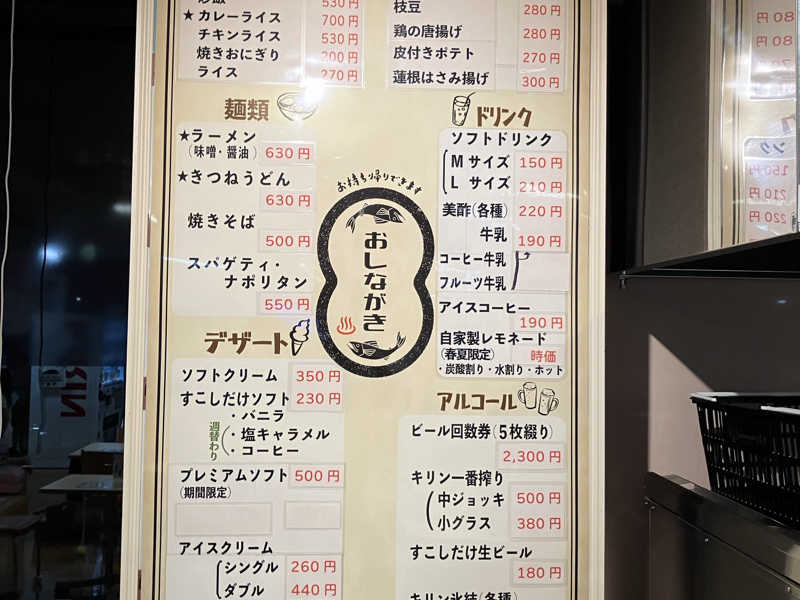 炒飯 530円
★カレーライス 700円
チキンライス 530円
焼きおにぎり 200円
ライス 270円
麺類
★ラーメン
(味噌・醤油) 630円
★きつねうどん
630円
焼きそば
500円
スパゲティ・
ナポリタン
550円
デザート
ソフトクリーム 350円
すこしだけソフト 230円
・バニラ
週替わり
・塩キャラメル
・コーヒー
プレミアムソフト 500円
(期間限定)
アイスクリーム
シングル 260円
ダブル 440円
お持ち帰りできます
おしながき
枝豆 280円
鶏の唐揚げ 280円
皮付きポテト 270円
蓮根はさみ揚げ 300円
ドリンク
ソフトドリンク
Mサイズ 150円
Lサイズ 210円
美酢(各種) 220円
牛乳 190円
コーヒー牛乳
フルーツ牛乳
アイスコーヒー
190円
自家製レモネード
(春夏限定) 時価
・炭酸割り・水割り・ホット
アルコール
ビール回数券(5枚綴り)
2,300円
キリン一番搾り
中ジョッキ 500円
小グラス 380円
すこしだけ生ビール
180円
キリン氷結(各種)
RIN